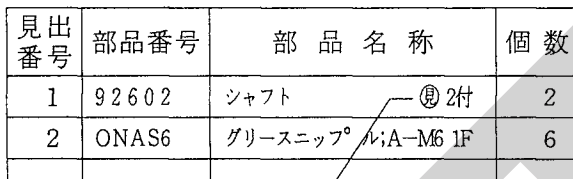 見出番号 部品番号 部品名称 個数
1 92602 シャフト ㊡ 2付 2
2 ONAS6 グリースニップル;A-M6 1F 6